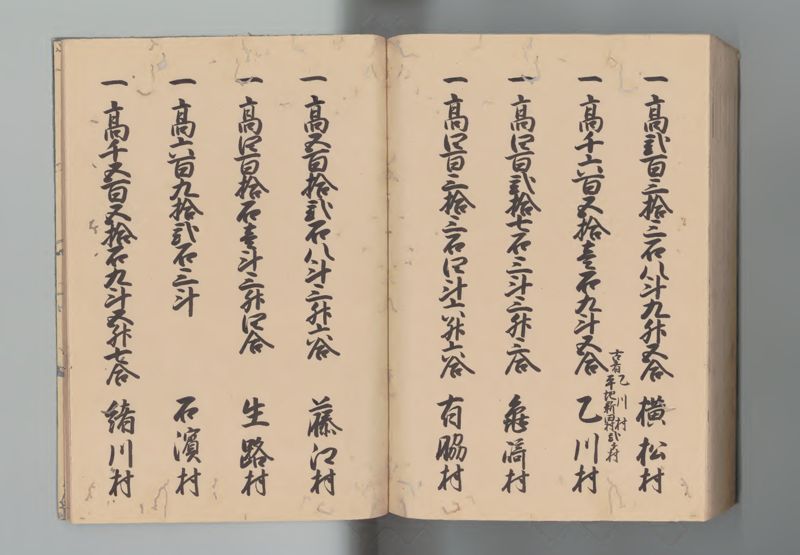 一高弐百三拾三石八斗九升五合 横松村
一高千六百五拾壱石九斗五合 乙川村
古者乙川村
平地新田村弐ケ村
一高四百弐拾七石三斗三升二合 亀崎村
一高四百三拾三石四斗六升六合 有脇村
一高五百拾弐石八斗三升六合 藤江村
一高四百拾石壱斗三升四合 生路村
一高六百九拾弐石三斗 石濱村
一高千五百五拾石九斗五升七合 緒川村